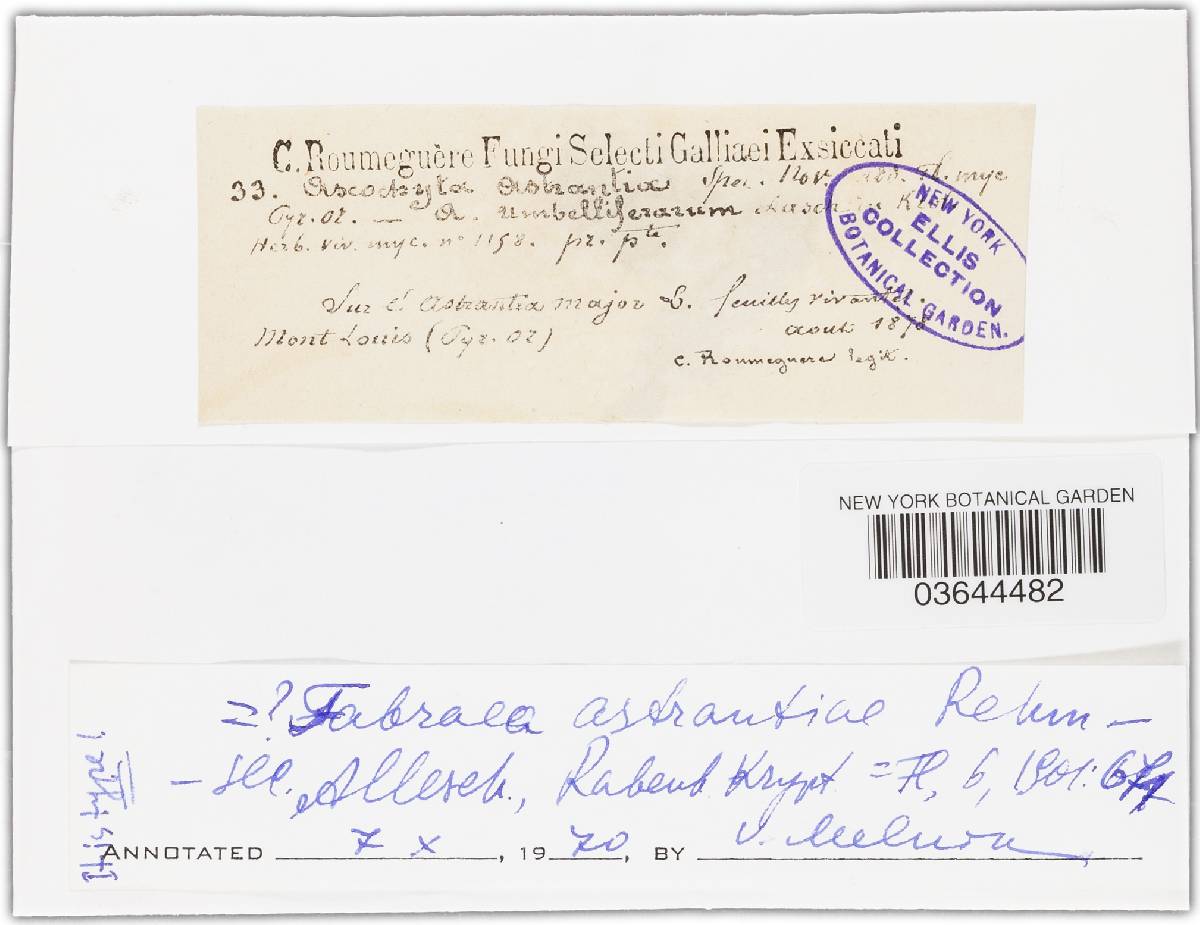 C. Roumeguère Fungi Selecti Galliaei Exsiccati
33. Ascochyta Astrantiæ Spec. Nov. Fl. myc
Pyr. or. — A. umbelliferarum
Herb. viv. myc. nº 1158. pr. pte.
Sur l' Astrantia major L. feuilles vivantes.
Mont Louis (Pyr. or) aout 1878
C. Roumeguere legit.
NEW YORK
ELLIS
COLLECTION
BOTANICAL GARDEN.
NEW YORK BOTANICAL GARDEN
03644482
=? Fabraea astrantiae Rehm —
— sec. Allesch., Rabenh Krypt = Fl, 6, 1901:
ANNOTATED 7 X, 1970, BY V. Melnik